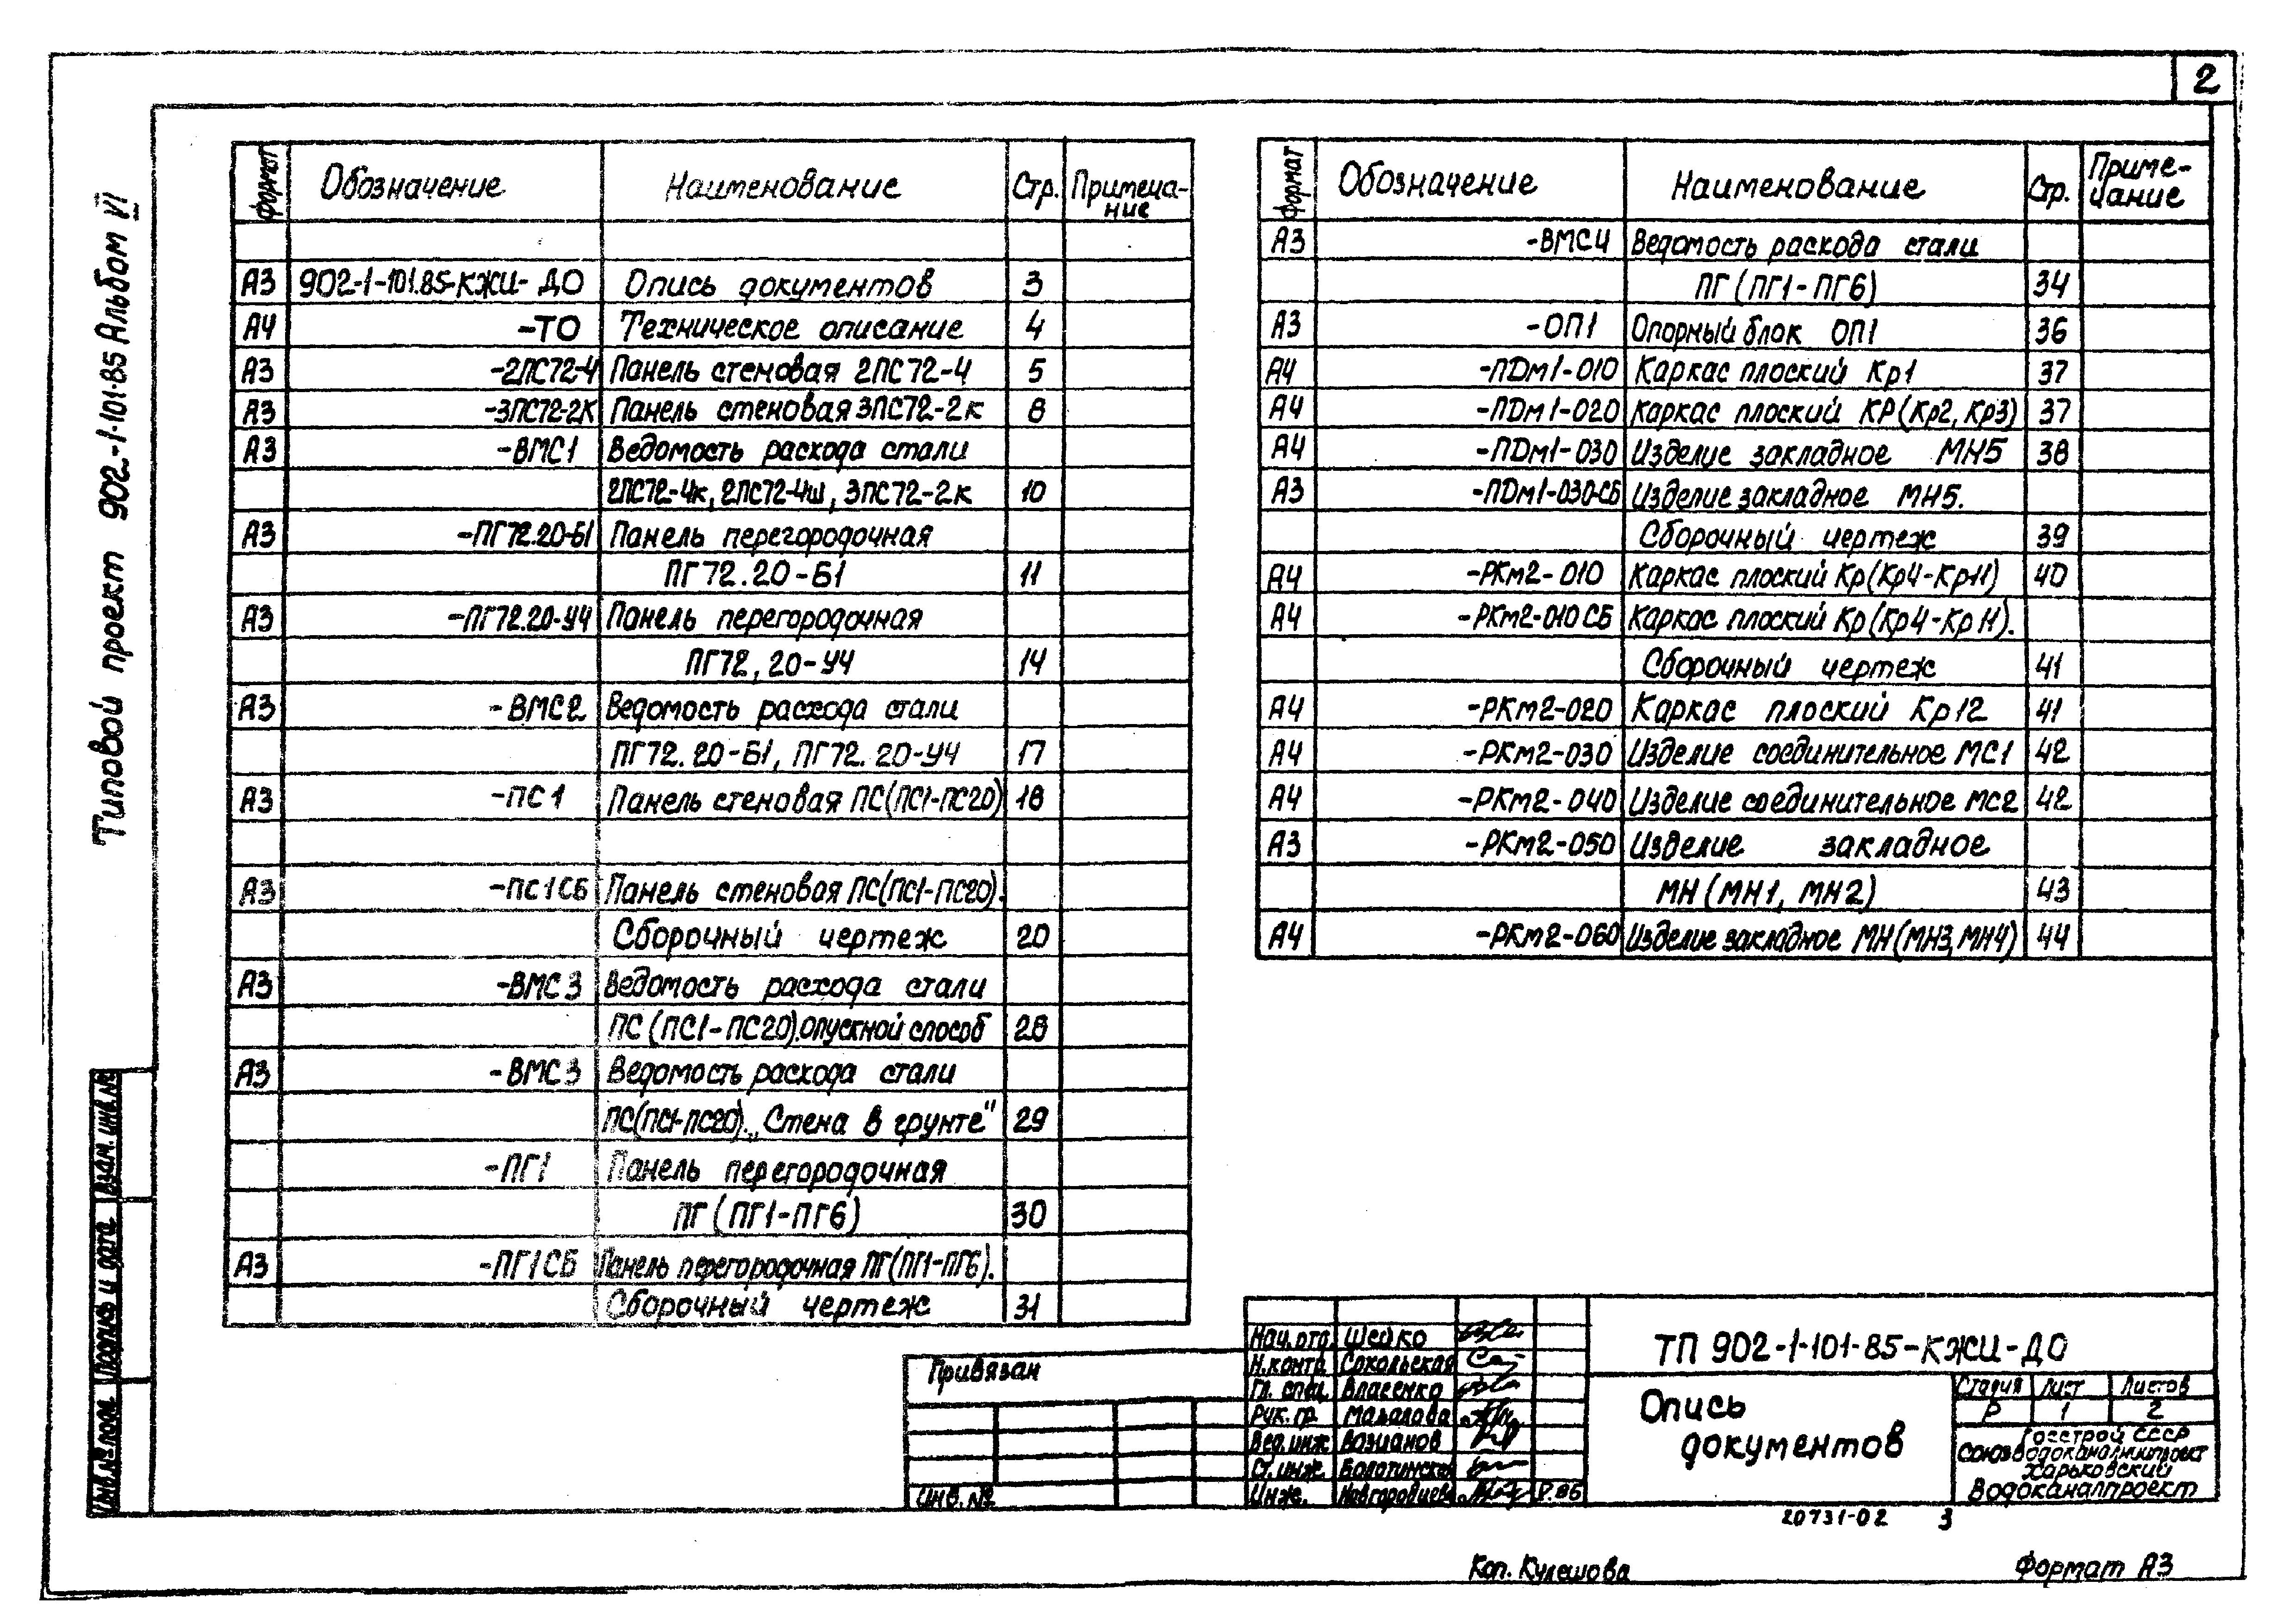 2
Типовой проект 902-1-101-85 Альбом VI
Формат Обозначение Наименование Стр. Примеча-
ние
А3 902-1-101.85-КЖИ-ДО Опись документов 3
А4 -ТО Техническое описание 4
А3 -2ПС72-4 Панель стеновая 2ПС72-4 5
А3 -3ПС72-2К Панель стеновая 3ПС72-2к 8
А3 -ВМС1 Ведомость расхода стали
2ПС72-4к, 2ПС72-4ш, 3ПС72-2к 10
А3 -ПГ72.20-Б1 Панель перегородочная
ПГ72.20-Б1 11
А3 -ПГ72.20-У4 Панель перегородочная
ПГ72,20-У4 14
А3 -ВМС2 Ведомость расхода стали
ПГ72.20-Б1, ПГ72.20-У4 17
А3 -ПС1 Панель стеновая ПС(ПС1-ПС20) 18
А3 -ПС1СБ Панель стеновая ПС(ПС1-ПС20).
Сборочный чертеж 20
А3 -ВМС3 Ведомость расхода стали
ПС (ПС1-ПС20).Опускной способ 28
А3 -ВМС3 Ведомость расхода стали
ПС(ПС1-ПС20). „Стена в грунте" 29
-ПГ1 Панель перегородочная
ПГ (ПГ1-ПГ6) 30
А3 -ПГ1СБ Панель перегородочная ПГ(ПГ1-ПГ6).
Сборочный чертеж 31
Формат Обозначение Наименование Стр. Приме-
чание
А3 -ВМС4 Ведомость расхода стали
ПГ (ПГ1-ПГ6) 34
А3 -ОП1 Опорный блок ОП1 36
А4 -ПДм1-010 Каркас плоский Кр1 37
А4 -ПДм1-020 Каркас плоский КР(Кр2, Кр3) 37
А4 -ПДм1-030 Изделие закладное МН5 38
А3 -ПДм1-030-СБ Изделие закладное МН5.
Сборочный чертеж 39
А4 -РКм2-010 Каркас плоский Кр(Кр4-Кр11) 40
А4 -РКм2-010СБ Каркас плоский Кр(Кр4-Кр11).
Сборочный чертеж 41
А4 -РКм2-020 Каркас плоский Кр12 41
А4 -РКм2-030 Изделие соединительное МС1 42
А4 -РКм2-040 Изделие соединительное МС2 42
А3 -РКм2-050 Изделие закладное
МН (МН1, МН2) 43
А4 -РКм2-060 Изделие закладное МН(МН3,МН4) 44
Взам. инв.№
Подпись и дата
Инв.№ подл.
Привязан
Инв. №
Нач.отд. Шейко
Н.контр. Сокольская
Гл. спец. Власенко
Рук. гр.
Вед.инж. Вазианов
Ст.инж.
Инж.
ТП 902-1-101-85-КЖИ-ДО
Опись
документов
Стадия Лист Листов
Р 1 2
Госстрой СССР
Союзводоканалниипроект
Харьковский
Водоканалпроект
20731-02 3
Коп. Кулешова
Формат А3